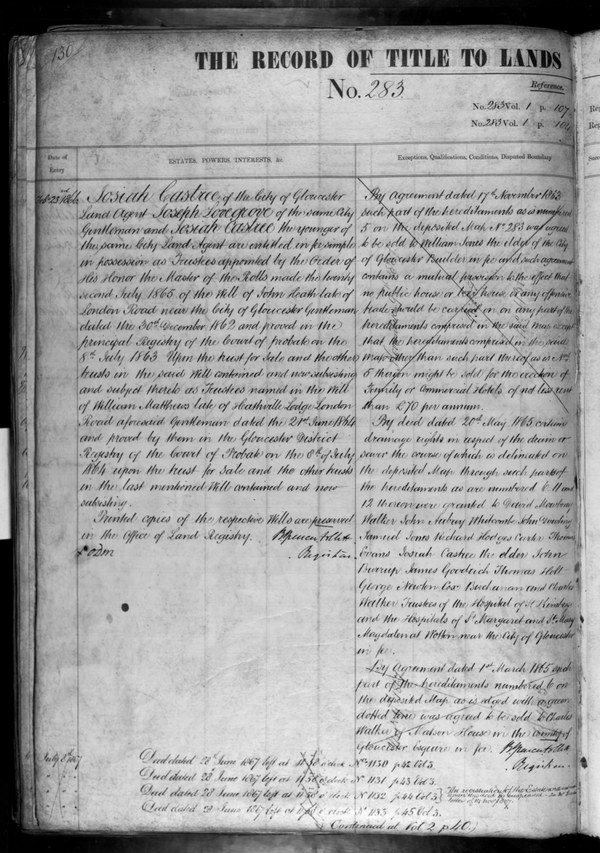 130
THE RECORD OF TITLE TO LANDS
No. 283.
Reference.
No. 283 Vol. 1 p. 107
No. 283 Vol. 1 p.
Date of Entry
ESTATES, POWERS, INTERESTS, &c.
Exceptions, Qualifications, Conditions, Disputed Boundary
Josiah Castree of the City of Gloucester
Land Agent Joseph Lovegrove of the same City
Gentleman and Josiah Castree the younger of
the same City Land Agent are entitled in fee simple
in possession as Trustees appointed by the Order of
His Honor the Master of the Rolls made the twenty
second July 1865 of the Will of John Heath late of
London Road near the City of Gloucester Gentleman
dated the 30th December 1862 and proved in the
principal Registry of the Court of Probate on the
8th July 1863 Upon the trust for Sale and the other
trusts in the said Will contained and now subsisting
and subject thereto as Trustees named in the Will
of William Matthews late of Heathville Lodge London
Road aforesaid Gentleman dated the 21st June 1864
and proved by them in the Gloucester District
Registry of the Court of Probate on the 8th of July
1864 upon the trust for Sale and the other trusts
in the last mentioned Will contained and now
subsisting.
Printed copies of the respective Wills are preserved
in the Office of Land Registry.
Registrar.
By Agreement dated 17th November 1863
such part of the hereditaments as is numbered
5 on the deposited Map No. 283 was agreed
to be sold to William Jones the elder of the City
of Gloucester Builder in fee and such agreement
contains a mutual provision to the effect that
no public house or beer house or any offensive
trade should be carried on on any part of the
hereditaments comprised in the said map except
that the hereditaments comprised in the said
map other than such part thereof as is No.
5 thereon might be sold for the erection of
Family or Commercial Hotels of not less rent
than £70 per annum.
By deed dated 20th May 1865 certain
drainage rights in respect of the drain or
sewer the course of which is delineated on
the deposited Map through such parts of
the hereditaments as are numbered 6 11 and
12 thereon were granted to David Mowbray
Walker John Aubrey Whitcombe John
Samuel Jones Richard Hodges Carter Thomas
Evans Josiah Castree the elder John
James Goodrich Thomas Holt
George Newton Esqr Buchanan and Charles
Walker Trustees of the Hospital of St
and the Hospitals of St Margaret and St Mary
Magdalen at Wotton near the City of Gloucester
in fee.
By Agreement dated 1st March 1865 such
part of the hereditaments numbered 6 on
the deposited Map as is edged with a green
dotted line was agreed to be sold to Charles
Walker of Matson House in the County of
Gloucester Esquire in fee.
Registrar.
Deed dated 28 June 1867 left at 11.50 o'clock No 1130 p 42 Vol 3.
Deed dated 28 June 1867 left at 11.50 o'clock No 1131 p 43 Vol 3.
Deed dated 28 June 1867 left at 11.50 o'clock No 1132 p 44 Vol 3.
Deed dated 28 June 1867 left at 11.50 o'clock No 1133 p 45 Vol 3.
Condensed at Vol 2 p 40.